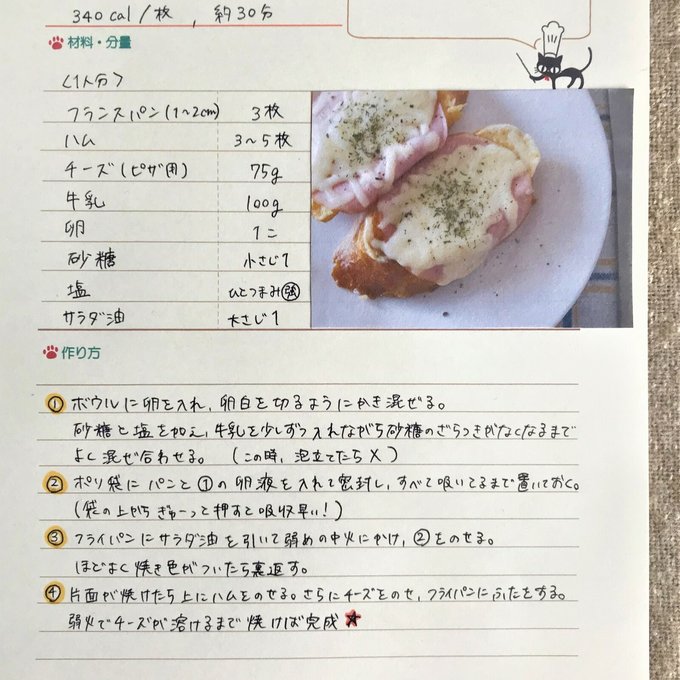 340 cal/枚 , 約30分
材料・分量
〈1人分〉
フランスパン(1~2cm) 3枚
ハム 3~5枚
チーズ(ピザ用) 75g
牛乳 100g
卵 1コ
砂糖 小さじ1
塩 ひとつまみ強
サラダ油 大さじ1
作り方
① ボウルに卵を入れ、卵白を切るようにかき混ぜる。
砂糖と塩を加え、牛乳を少しずつ入れながら砂糖のざらつきがなくなるまで
よく混ぜ合わせる。 (この時、泡立てたら×)
② ポリ袋にパンと①の卵液を入れて密封し、すべて吸いてるまで置いておく。
(袋の上から ぎゅーっと押すと吸収早い!)
③ フライパンにサラダ油を引いて弱めの中火にかけ、②をのせる。
ほどよく焼き色がついたら裏返す。
④ 片面が焼けたら上にハムをのせる。さらにチーズをのせ、フライパンにふたをする。
弱火でチーズが溶けるまで焼けば完成★